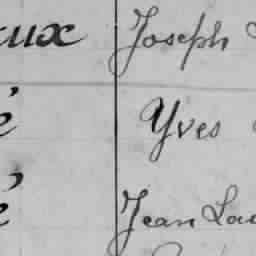 aux Joseph
é Yves
é Jean